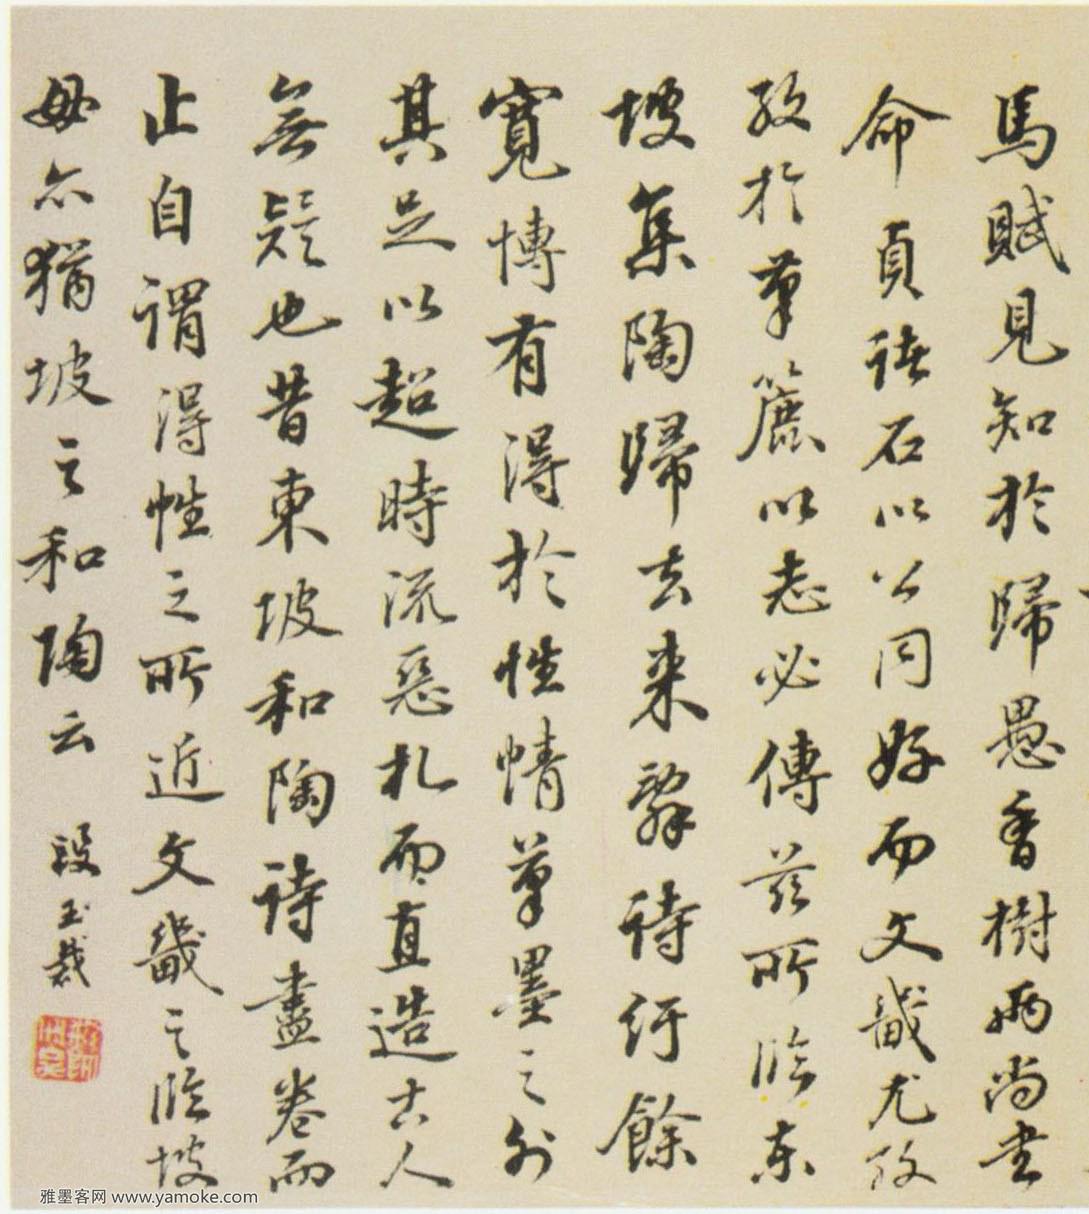 馬賦見知於歸愚香樹兩尚書
命貞諸石以公同好而文畿尤孜
孜於筆簏以志必傳茲所臨東
坡集陶歸去來辭詩紆餘
寬博有得於性情筆墨之外
其足以超時流惡札而直造古人
無疑也昔東坡和陶詩盡卷而
止自謂得性之所近文畿之臨坡
毋亦猶坡之和陶云 段玉裁
雅墨客网 www.yamoke.com